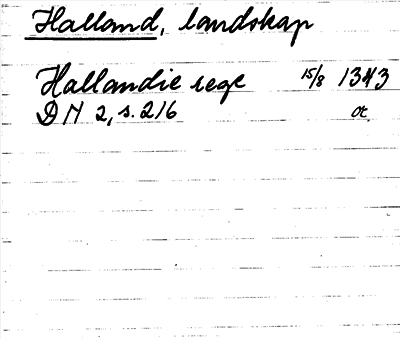 Halland, landskap
Hallandie rege 15/8 1343
DN 2, s. 216 or.